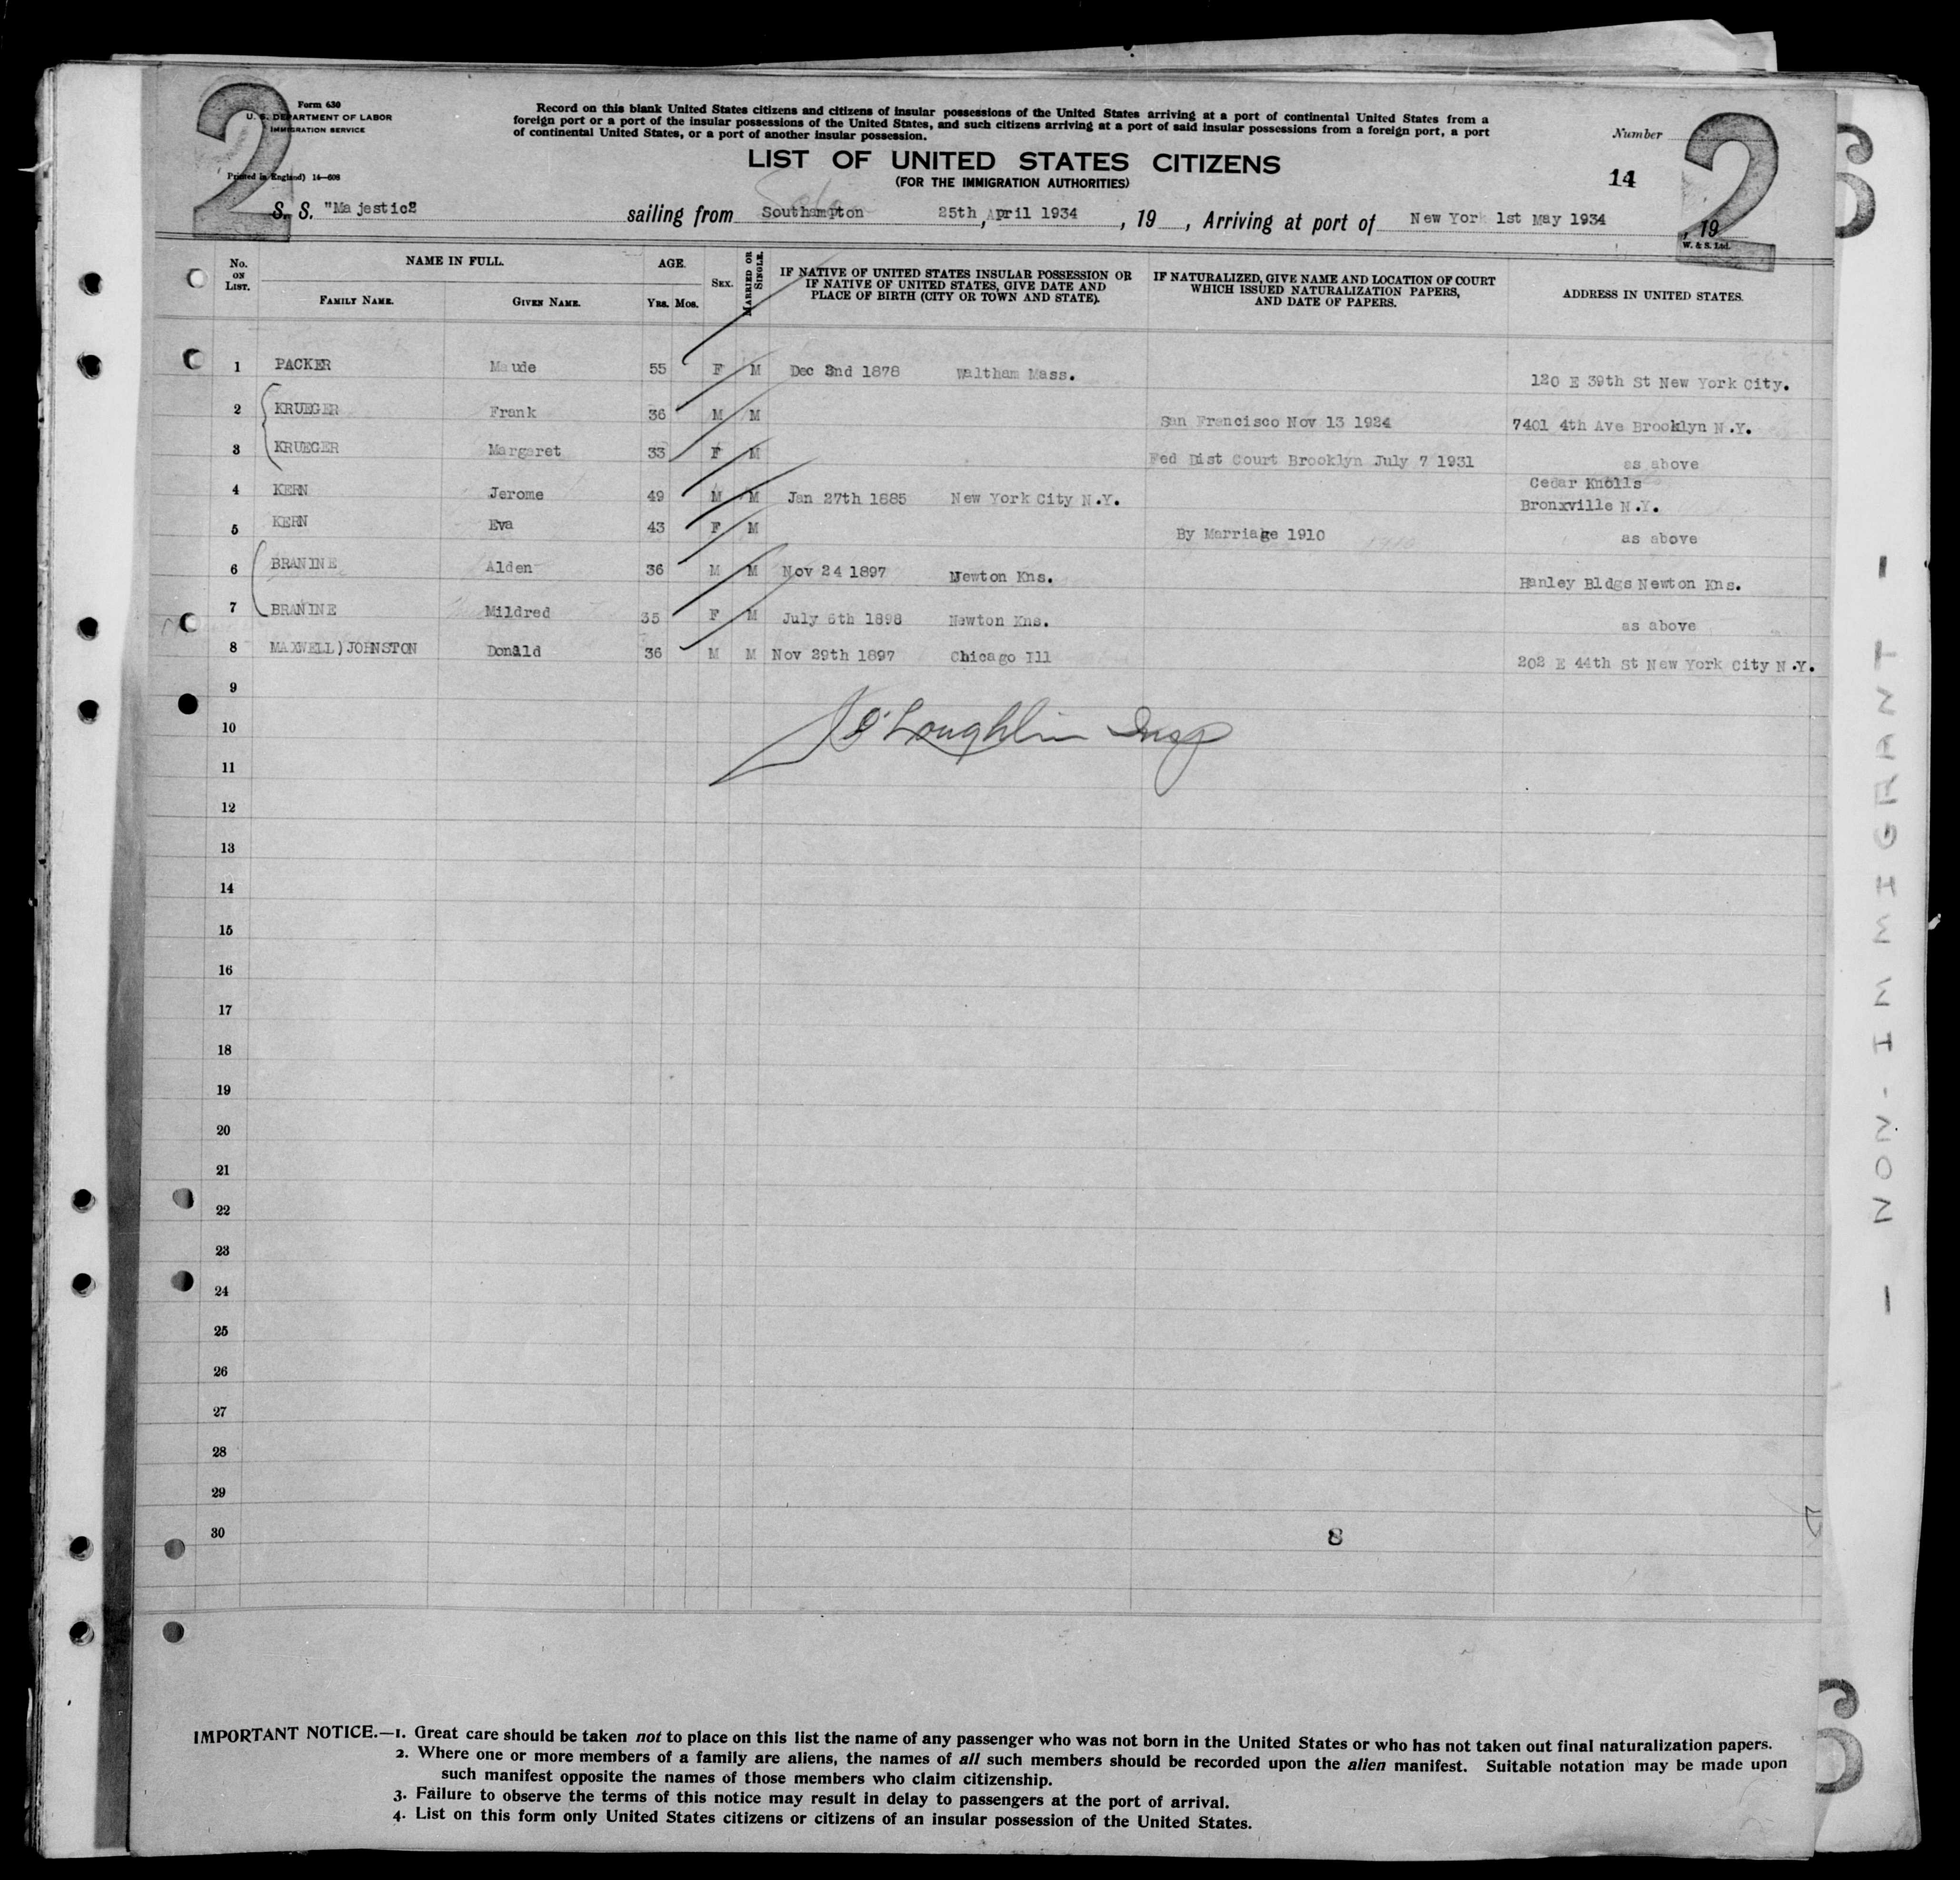 2
2
Form 630
U. S. DEPARTMENT OF LABOR
IMMIGRATION SERVICE
(Printed in England) 14—608
Record on this blank United States citizens and citizens of insular possessions of the United States arriving at a port of continental United States from a
foreign port or a port of the insular possessions of the United States, and such citizens arriving at a port of said insular possessions from a foreign port, a port
of continental United States, or a port of another insular possession.
Number
LIST OF UNITED STATES CITIZENS
(FOR THE IMMIGRATION AUTHORITIES)
14
S. S. "Majestic2 sailing from Southampton 25th, April 1934, 19 , Arriving at port of New York 1st May 1934, 19
W. & S. Ltd.
No. ON LIST. NAME IN FULL. AGE. SEX. MARRIED OR SINGLE. IF NATIVE OF UNITED STATES INSULAR POSSESSION OR IF NATIVE OF UNITED STATES, GIVE DATE AND PLACE OF BIRTH (CITY OR TOWN AND STATE). IF NATURALIZED, GIVE NAME AND LOCATION OF COURT WHICH ISSUED NATURALIZATION PAPERS, AND DATE OF PAPERS. ADDRESS IN UNITED STATES.
FAMILY NAME. GIVEN NAME. YRS. MOS.
1 PACKER Maude 55 F M Dec 2nd 1878 Waltham Mass. 120 E 39th St New York City.
2 KRUEGER Frank 36 M M San Francisco Nov 13 1924 7401 4th Ave Brooklyn N.Y.
3 KRUEGER Margaret 33 F M Fed Dist Court Brooklyn July 7 1931 as above
4 KERN Jerome 49 M M Jan 27th 1885 New York City N.Y. Cedar Knolls
Bronxville N.Y.
5 KERN Eva 43 F M By Marriage 1910 as above
6 BRANINE Alden 36 M M Nov 24 1897 Newton Kns. Hanley Bldgs Newton Kns.
7 BRANINE Mildred 35 F M July 6th 1898 Newton Kns. as above
8 MAXWELL)JOHNSTON Donald 36 M M Nov 29th 1897 Chicago Ill 202 E 44th St New York City N.Y.
9
10 O'Loughlin Insp
11
12
13
14
15
16
17
18
19
20
21
22
23
24
25
26
27
28
29
30 8
IMPORTANT NOTICE.—1. Great care should be taken not to place on this list the name of any passenger who was not born in the United States or who has not taken out final naturalization papers.
2. Where one or more members of a family are aliens, the names of all such members should be recorded upon the alien manifest. Suitable notation may be made upon
such manifest opposite the names of those members who claim citizenship.
3. Failure to observe the terms of this notice may result in delay to passengers at the port of arrival.
4. List on this form only United States citizens or citizens of an insular possession of the United States.
- NON-IMMIGRANT -
6
6